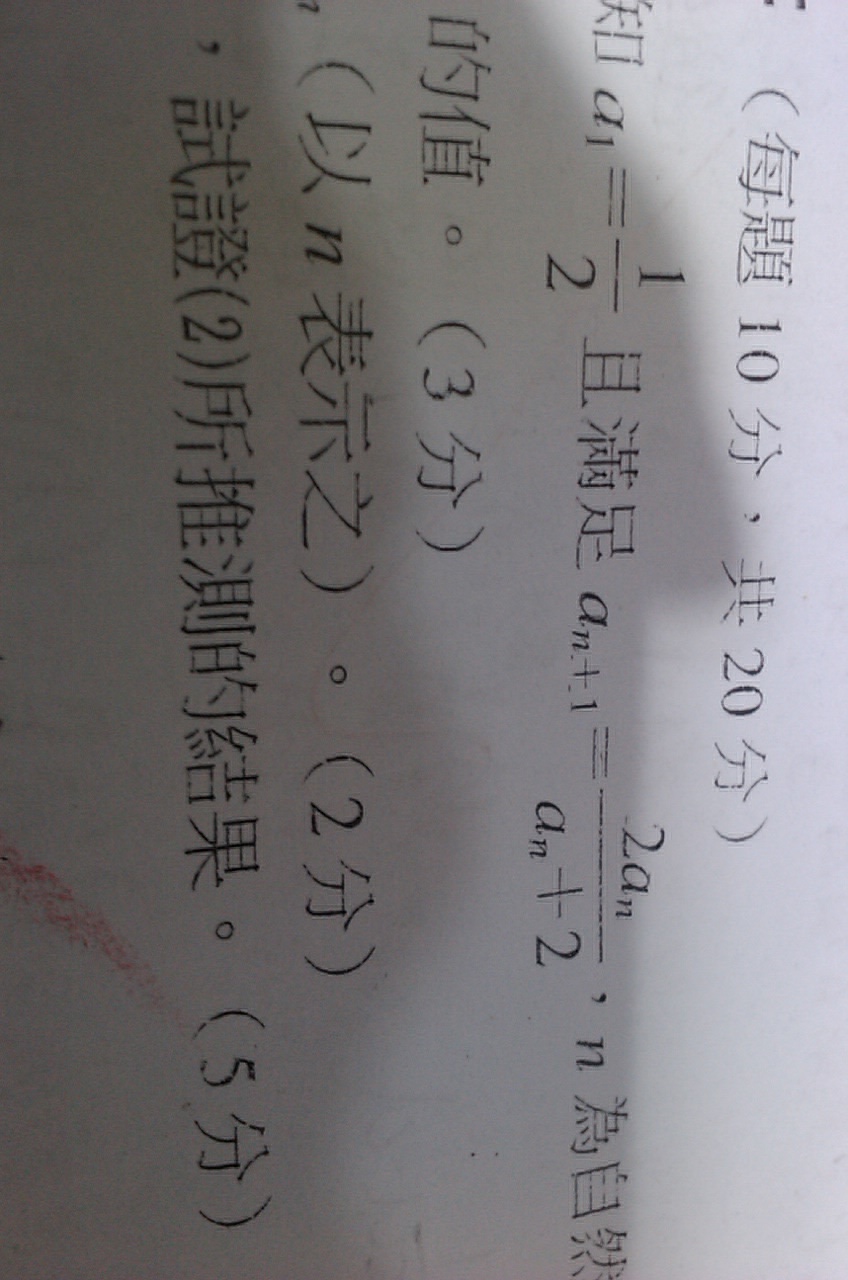 （每題 10 分，共 20 分）
知 a₁ = 1/2 且滿足 aₙ₊₁ = 2aₙ/(aₙ+2)，n 為自然
的值。（3 分）
n（以 n 表示之）。（2 分）
，試證(2)所推測的結果。（5 分）